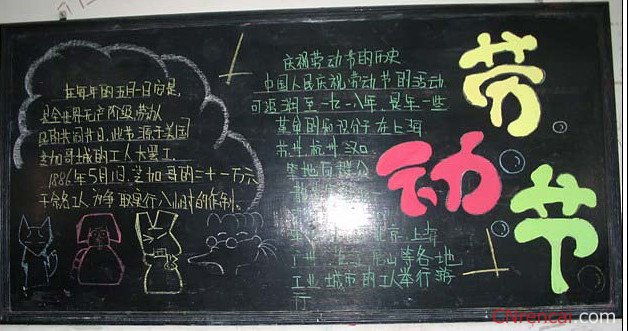 在每年的五月一日它是,
是全世界无产阶级、劳动人
民的共同节日,此节源于美国
芝加哥城的工人大罢工.
1886年5月1日,芝加哥的二十一万六
千余名工人为争取实行八小时的工作制。
庆祝劳动节的历史
中国人民庆祝劳动节的活动
可追溯至一九一八年,是年一些
革命的知识分子在上海
苏州、杭州、汉口
等地向群众
北京、上海
广州
山等各地
工业城市的工人举行游
行
劳
动
节
cnrencai.com